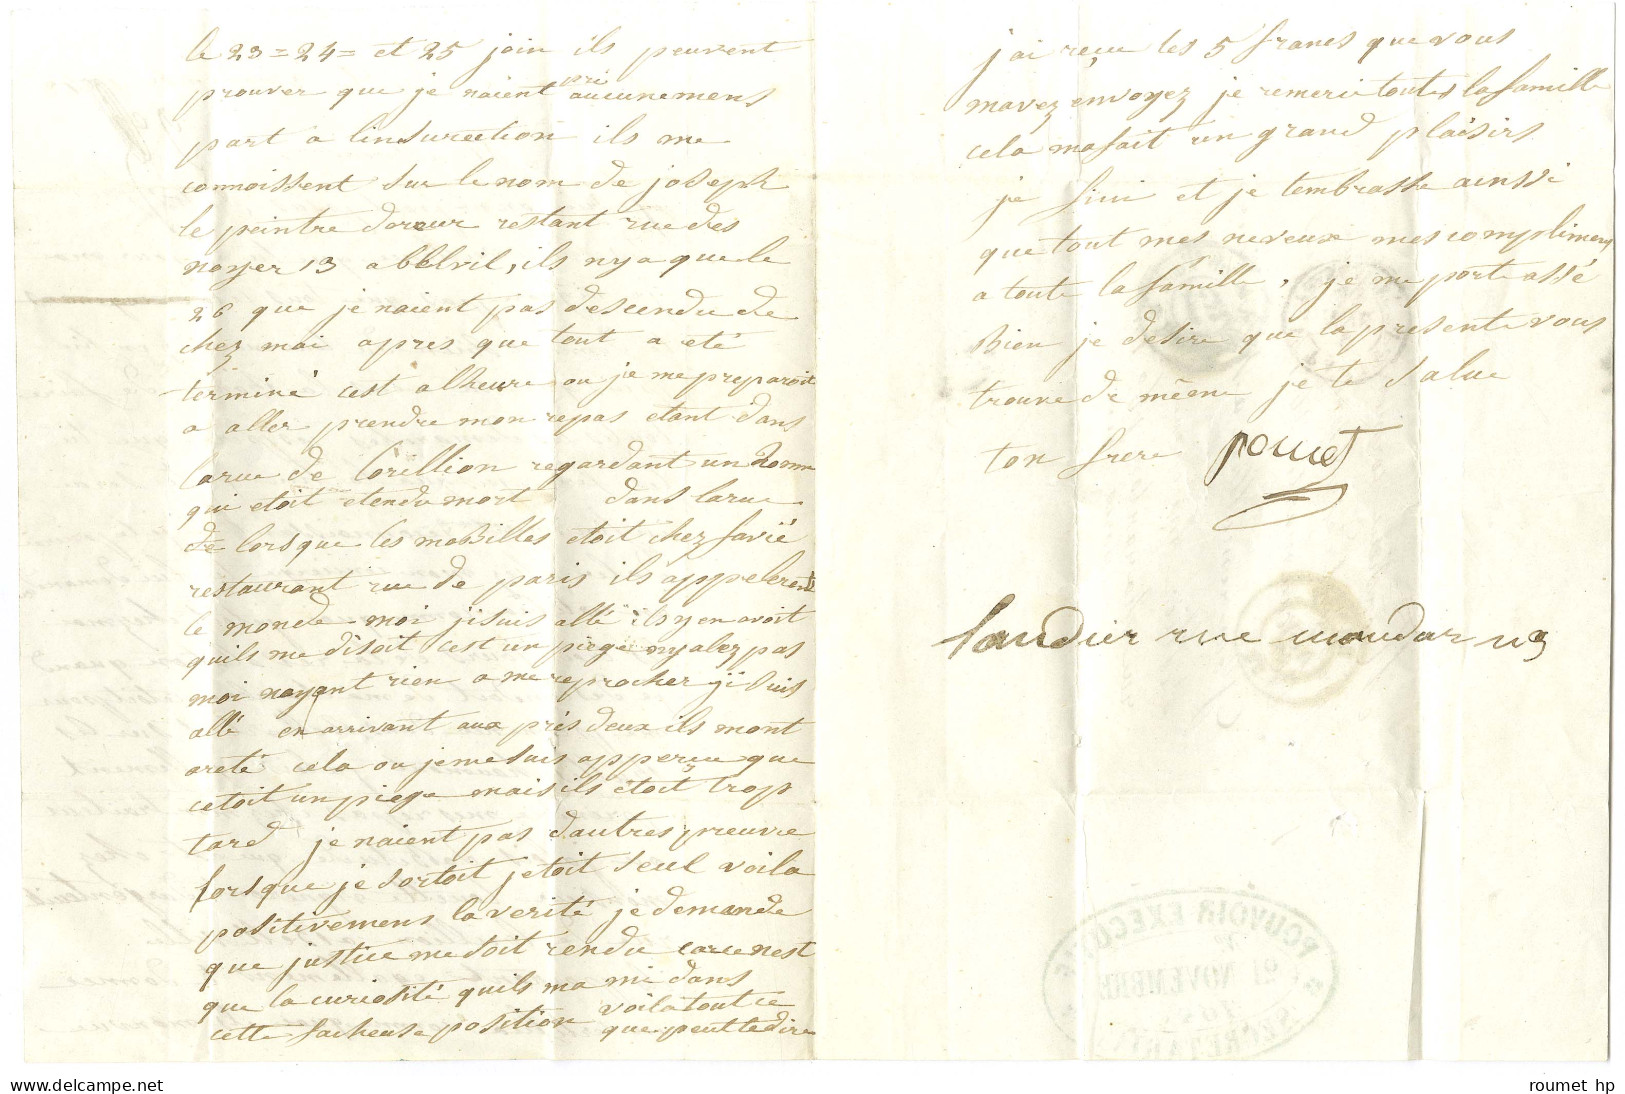 le 23 = 24 = et 25 join ils peuvent
prouver que je naient pri aucunemens
part a linsurection ils me
connoissent sur le nom de joseph
le peintre doreur restant rue des
noyer 13 a bblvil, ils nya que le
26 que je naient pas descendu de
chez moi apres que tout a eté
terminé cest alheure ou je me preparoit
a aller prendre mon repas etant dans
larue de Lorillion regardant un
qui etoit etendu mort dans larue
de lorsque les mobilles etoit chez favié
restaurant rue de paris ils appelerent
le monde moi ji suis allé ils yen avoit
quils me disoit cest un piege nyalez pas
moi nayant rien a me reprocher ji suis
allé en arrivant aux près deux ils mont
areté cela ou jemesuis apperçu que
cetoit un piege mais ils étoit trop
tard je naient pas dautres preuvre
lorsque je sortoit jetoit seul voila
positivemens la verité je demande
que justice me soit rendu carce nest
que la curiosité quils ma mi dans
cette facheuse position voila tout ce
que peut te dire
jai reçue les 5 francs que vous
mavez envoyez je remerie toutes la famille
cela mafait un grand plaisirs
je fini et je tembrasse ainssi
que tout mes neveux mes complimens
a toute la famille, je me porte assé
Bien je desire que la presente vous
trouve de même je te salue
ton frere pouget
Landier rue mondar n9
POUVOIR EXECUTIF
21 NOVEMBRE
SECRETARIAT
roumet hp